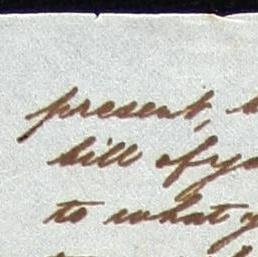 present,
bill of
to what